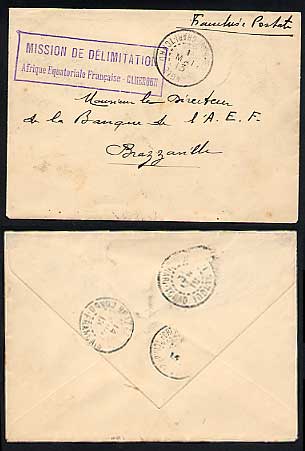 Franchise Postale
MISSION DE DÉLIMITATION
Afrique Equatoriale Française - CAMEROUN
1
13
Monsieur le Directeur
de la Banque de l'A. E. F.
Brazzaville
14